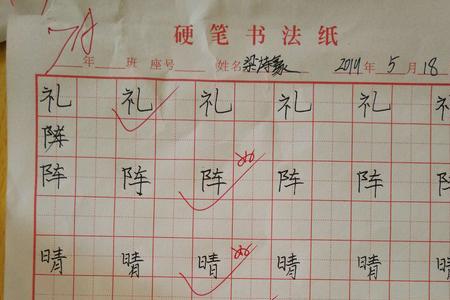 硬笔书法纸
年 班 座号 姓名 梁诗豪 2019 年 5 月 18
礼 礼 礼 礼 礼 礼
阵
阵 阵 阵 阵 阵 阵
晴 晴 晴 晴 晴 晴